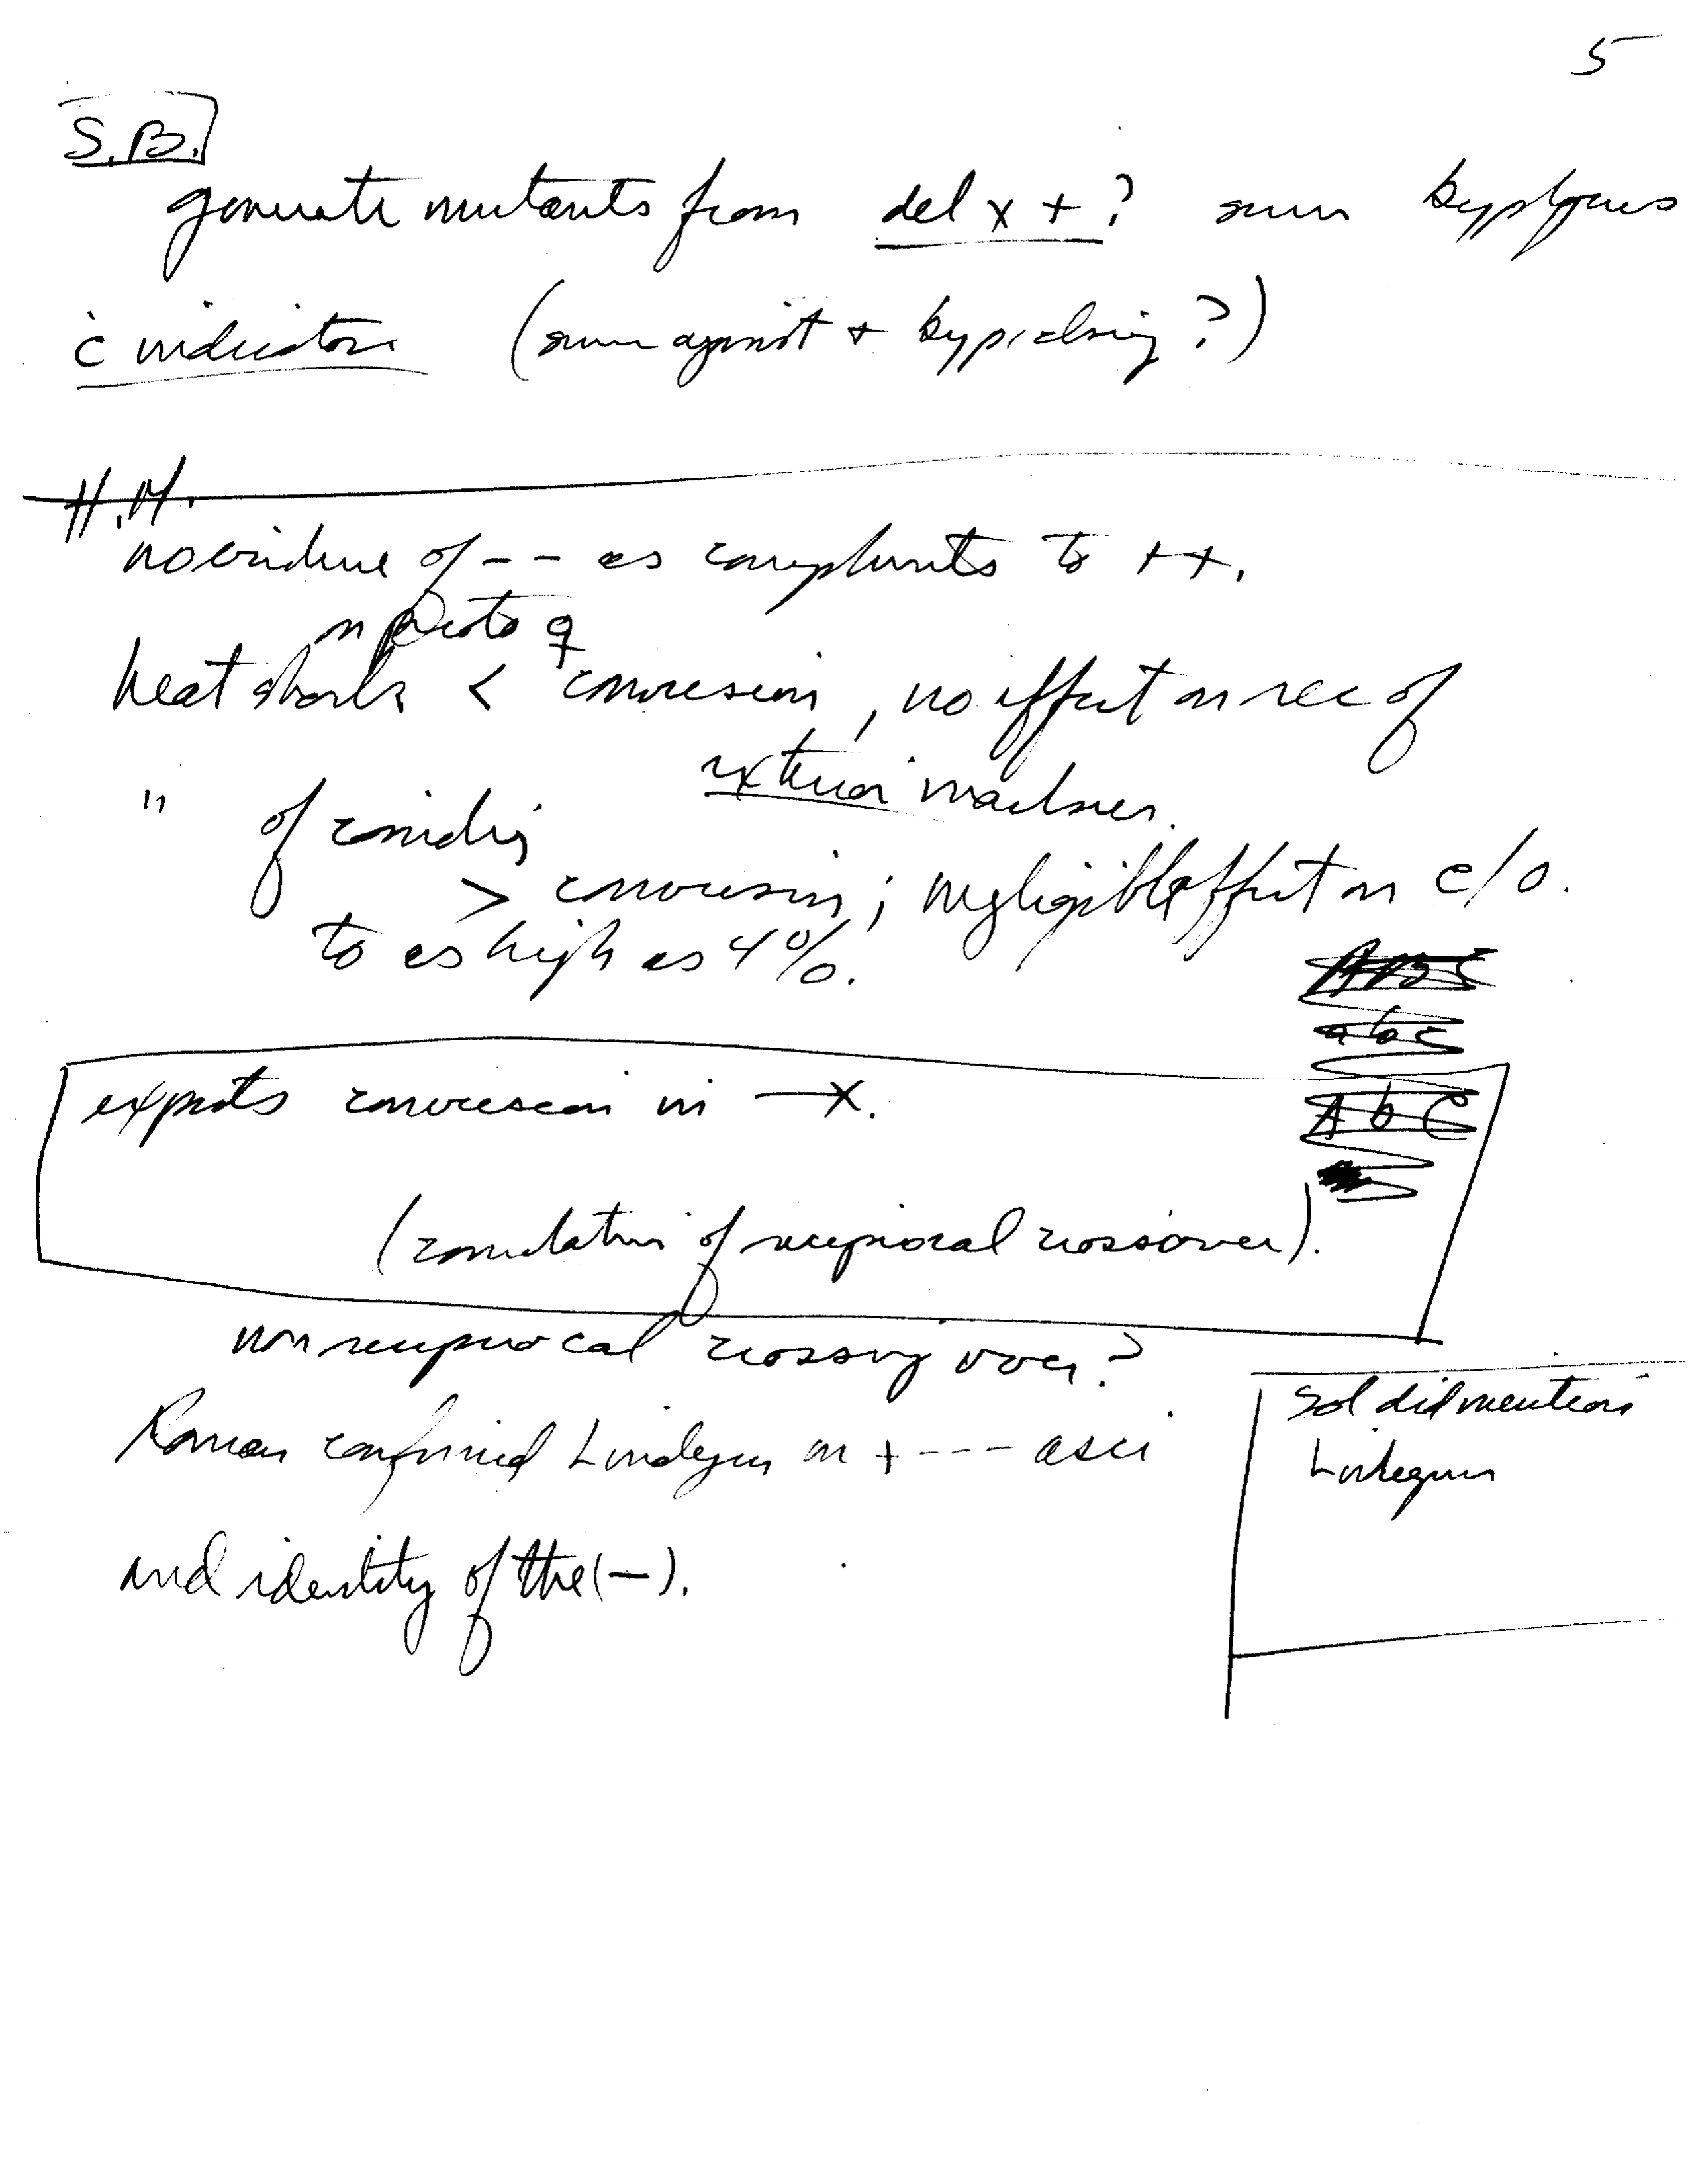 5
S.B.
generate mutants from del x + ?
c̄ indicator ( against + ?)
H.M.
no evidence of - - as complements to + +.
on proto ♀
heat shock < conversion, no effect on rec of
exterior markers.
" of conidia
> conversion; negligible effect on c/o.
to as high as 4%.
ABC
abc
A b C
expects conversion in —x.
( of reciprocal crossover).
non reciprocal crossing over?
Roman confirmed Lindegren on + - - - asci
and identity of the (—).
Sol did mention
Lindegren